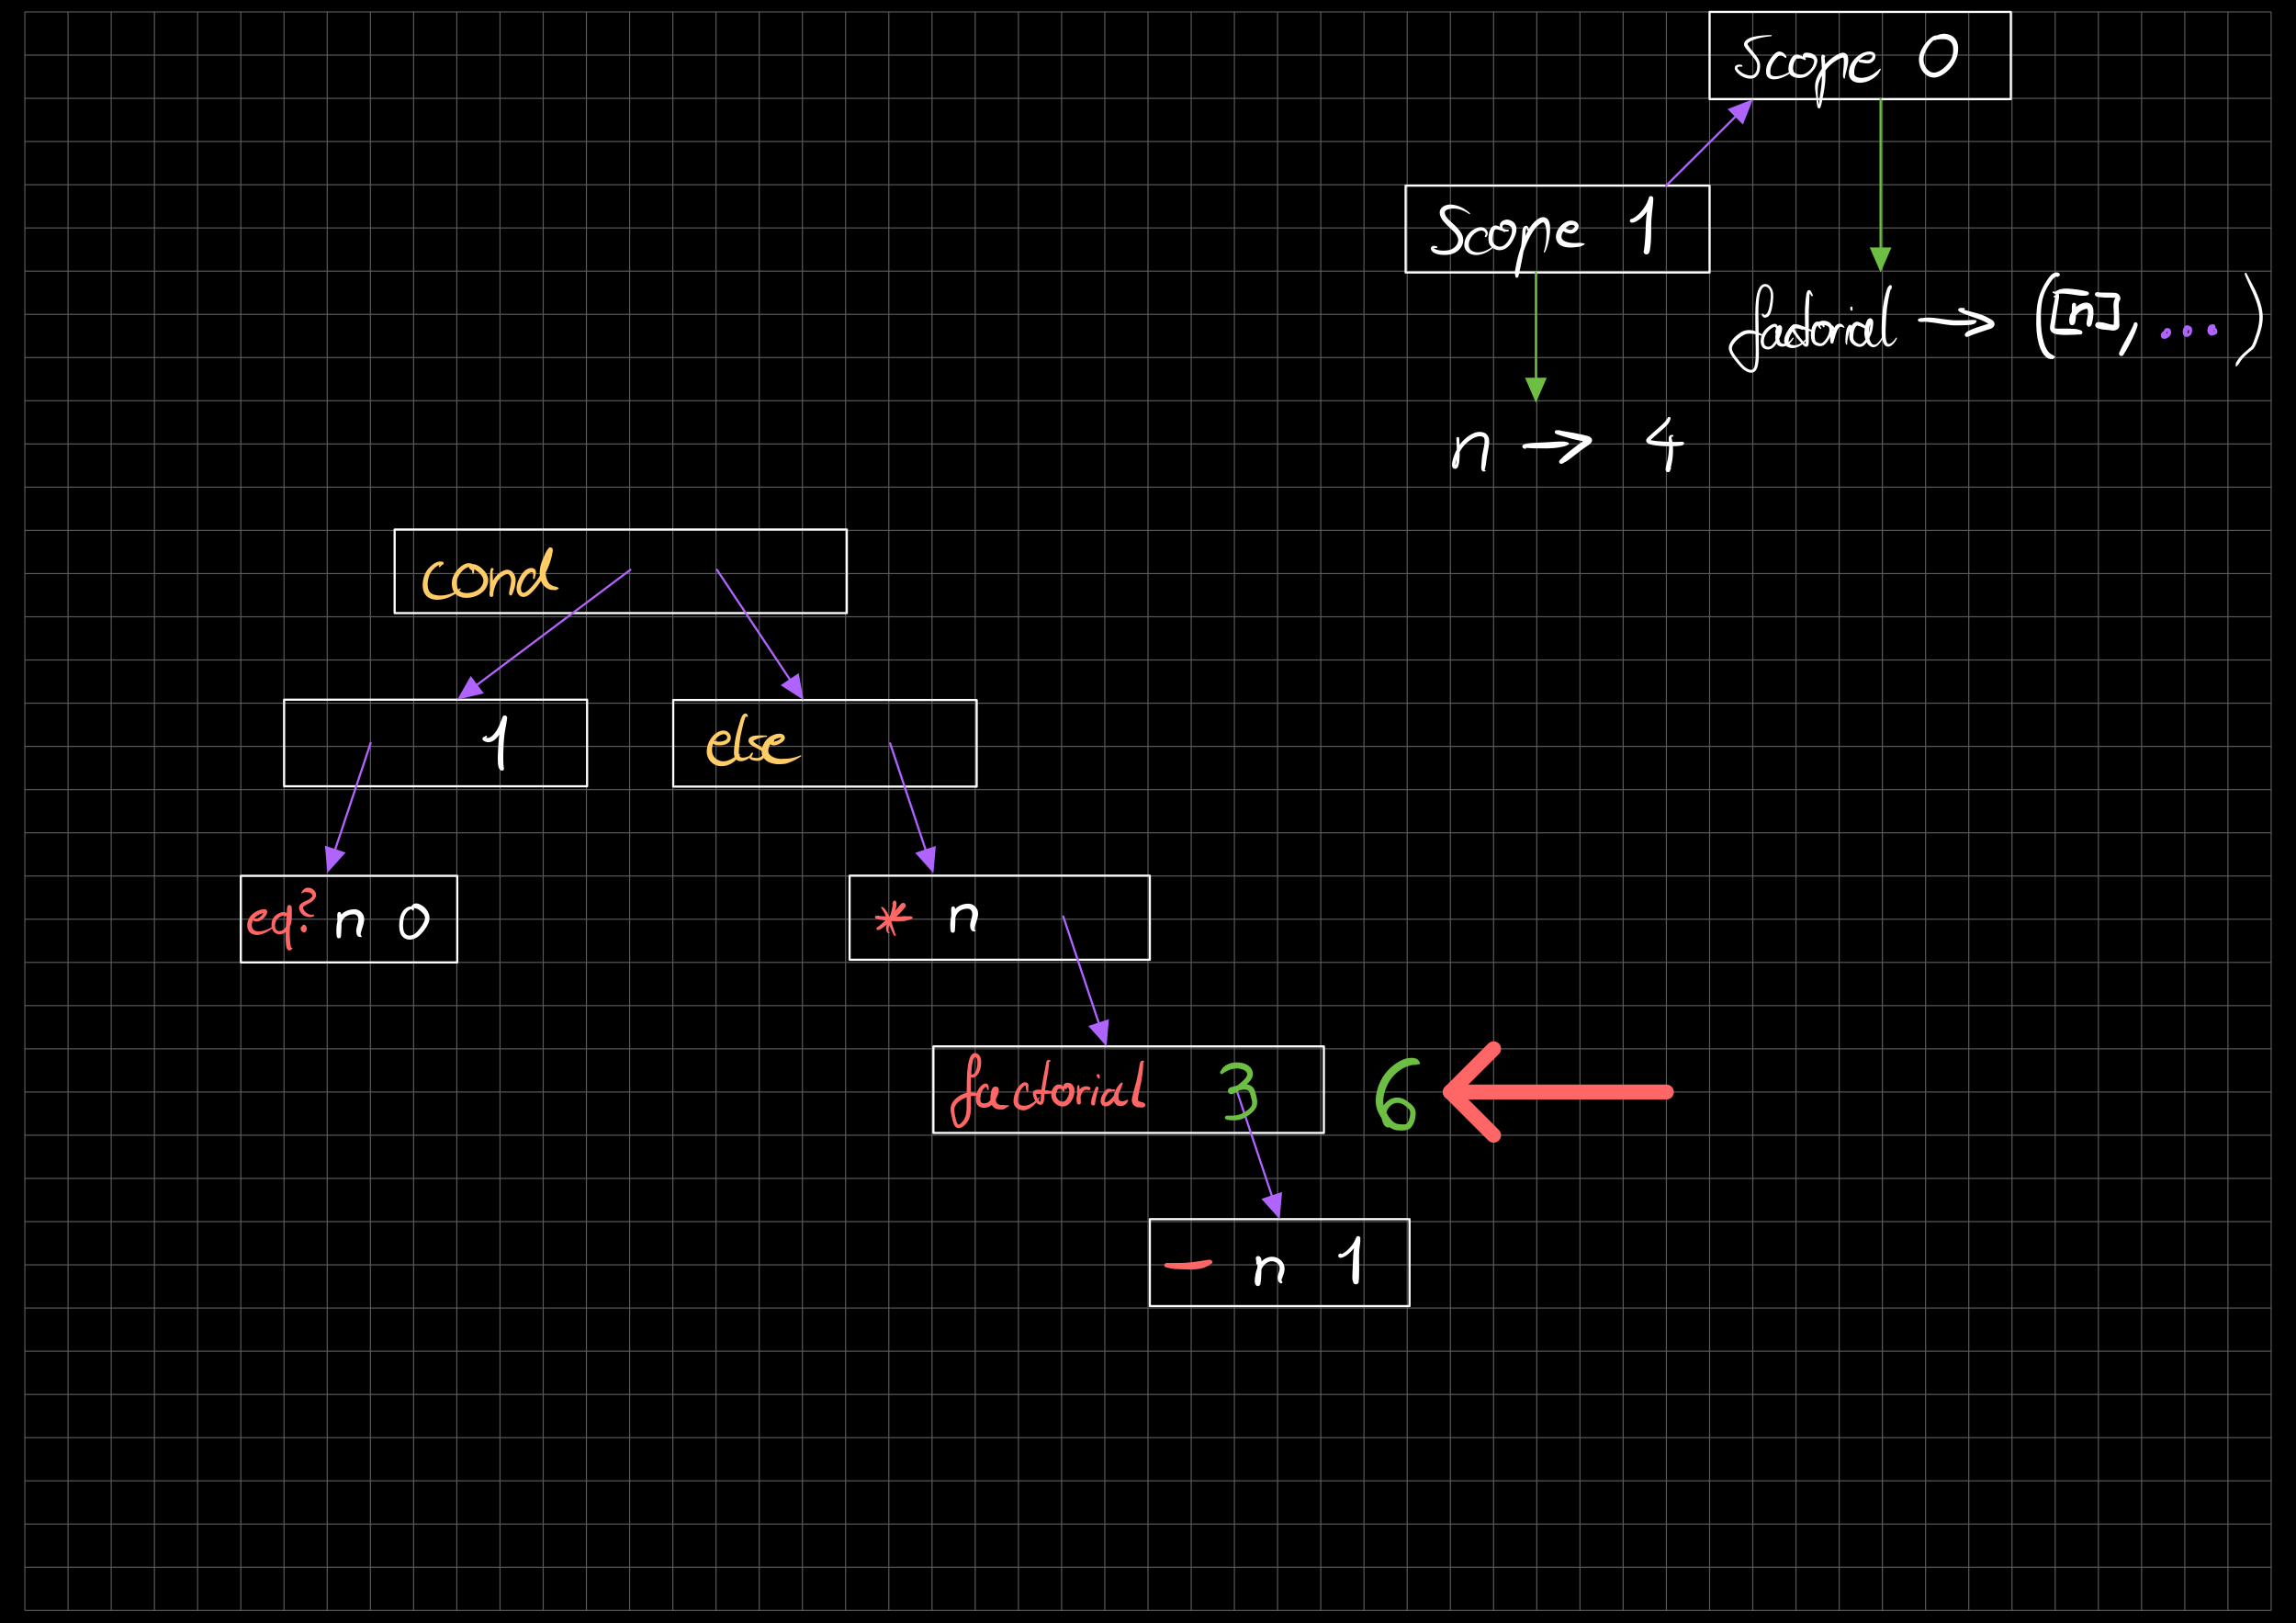 Scope 0
Scope 1
factorial → ([n], ...)
n → 4
cond
1
else
eq? n 0
* n
factorial 3 6
- n 1